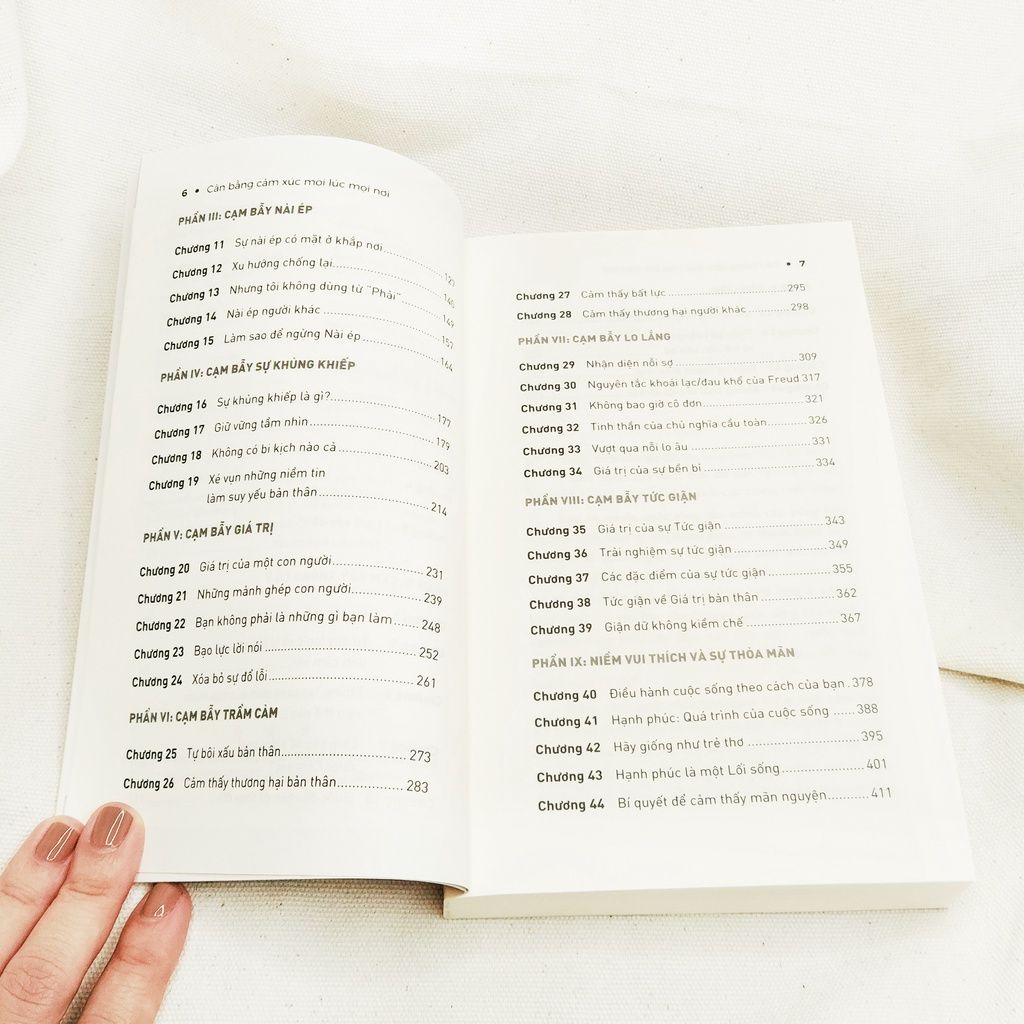 6 • Cân bằng cảm xúc mọi lúc mọi nơi
PHẦN III: CẠM BẪY NÀI ÉP
Chương 11 Sự nài ép có mặt ở khắp nơi ........ 127
Chương 12 Xu hướng chống lại ........ 140
Chương 13 Nhưng tôi không dùng từ “Phải” ........ 149
Chương 14 Nài ép người khác ........ 157
Chương 15 Làm sao để ngừng Nài ép ........ 164
PHẦN IV: CẠM BẪY SỰ KHỦNG KHIẾP
Chương 16 Sự khủng khiếp là gì? ........ 177
Chương 17 Giữ vững tầm nhìn ........ 179
Chương 18 Không có bi kịch nào cả ........ 203
Chương 19 Xé vụn những niềm tin
làm suy yếu bản thân ........ 214
PHẦN V: CẠM BẪY GIÁ TRỊ
Chương 20 Giá trị của một con người ........ 231
Chương 21 Những mảnh ghép con người ........ 239
Chương 22 Bạn không phải là những gì bạn làm ........ 248
Chương 23 Bạo lực lời nói ........ 252
Chương 24 Xóa bỏ sự đổ lỗi ........ 261
PHẦN VI: CẠM BẪY TRẦM CẢM
Chương 25 Tự bôi xấu bản thân ........ 273
Chương 26 Cảm thấy thương hại bản thân ........ 283
• 7
Chương 27 Cảm thấy bất lực ........ 295
Chương 28 Cảm thấy thương hại người khác ........ 298
PHẦN VII: CẠM BẪY LO LẮNG
Chương 29 Nhận diện nỗi sợ ........ 309
Chương 30 Nguyên tắc khoái lạc/đau khổ của Freud 317
Chương 31 Không bao giờ cô đơn ........ 321
Chương 32 Tinh thần của chủ nghĩa cầu toàn ........ 326
Chương 33 Vượt qua nỗi lo âu ........ 331
Chương 34 Giá trị của sự bền bỉ ........ 334
PHẦN VIII: CẠM BẪY TỨC GIẬN
Chương 35 Giá trị của sự Tức giận ........ 343
Chương 36 Trải nghiệm sự tức giận ........ 349
Chương 37 Các đặc điểm của sự tức giận ........ 355
Chương 38 Tức giận về Giá trị bản thân ........ 362
Chương 39 Giận dữ không kiềm chế ........ 367
PHẦN IX: NIỀM VUI THÍCH VÀ SỰ THỎA MÃN
Chương 40 Điều hành cuộc sống theo cách của bạn . 378
Chương 41 Hạnh phúc: Quá trình của cuộc sống ...... 388
Chương 42 Hãy giống như trẻ thơ ........ 395
Chương 43 Hạnh phúc là một Lối sống ........ 401
Chương 44 Bí quyết để cảm thấy mãn nguyện ........ 411